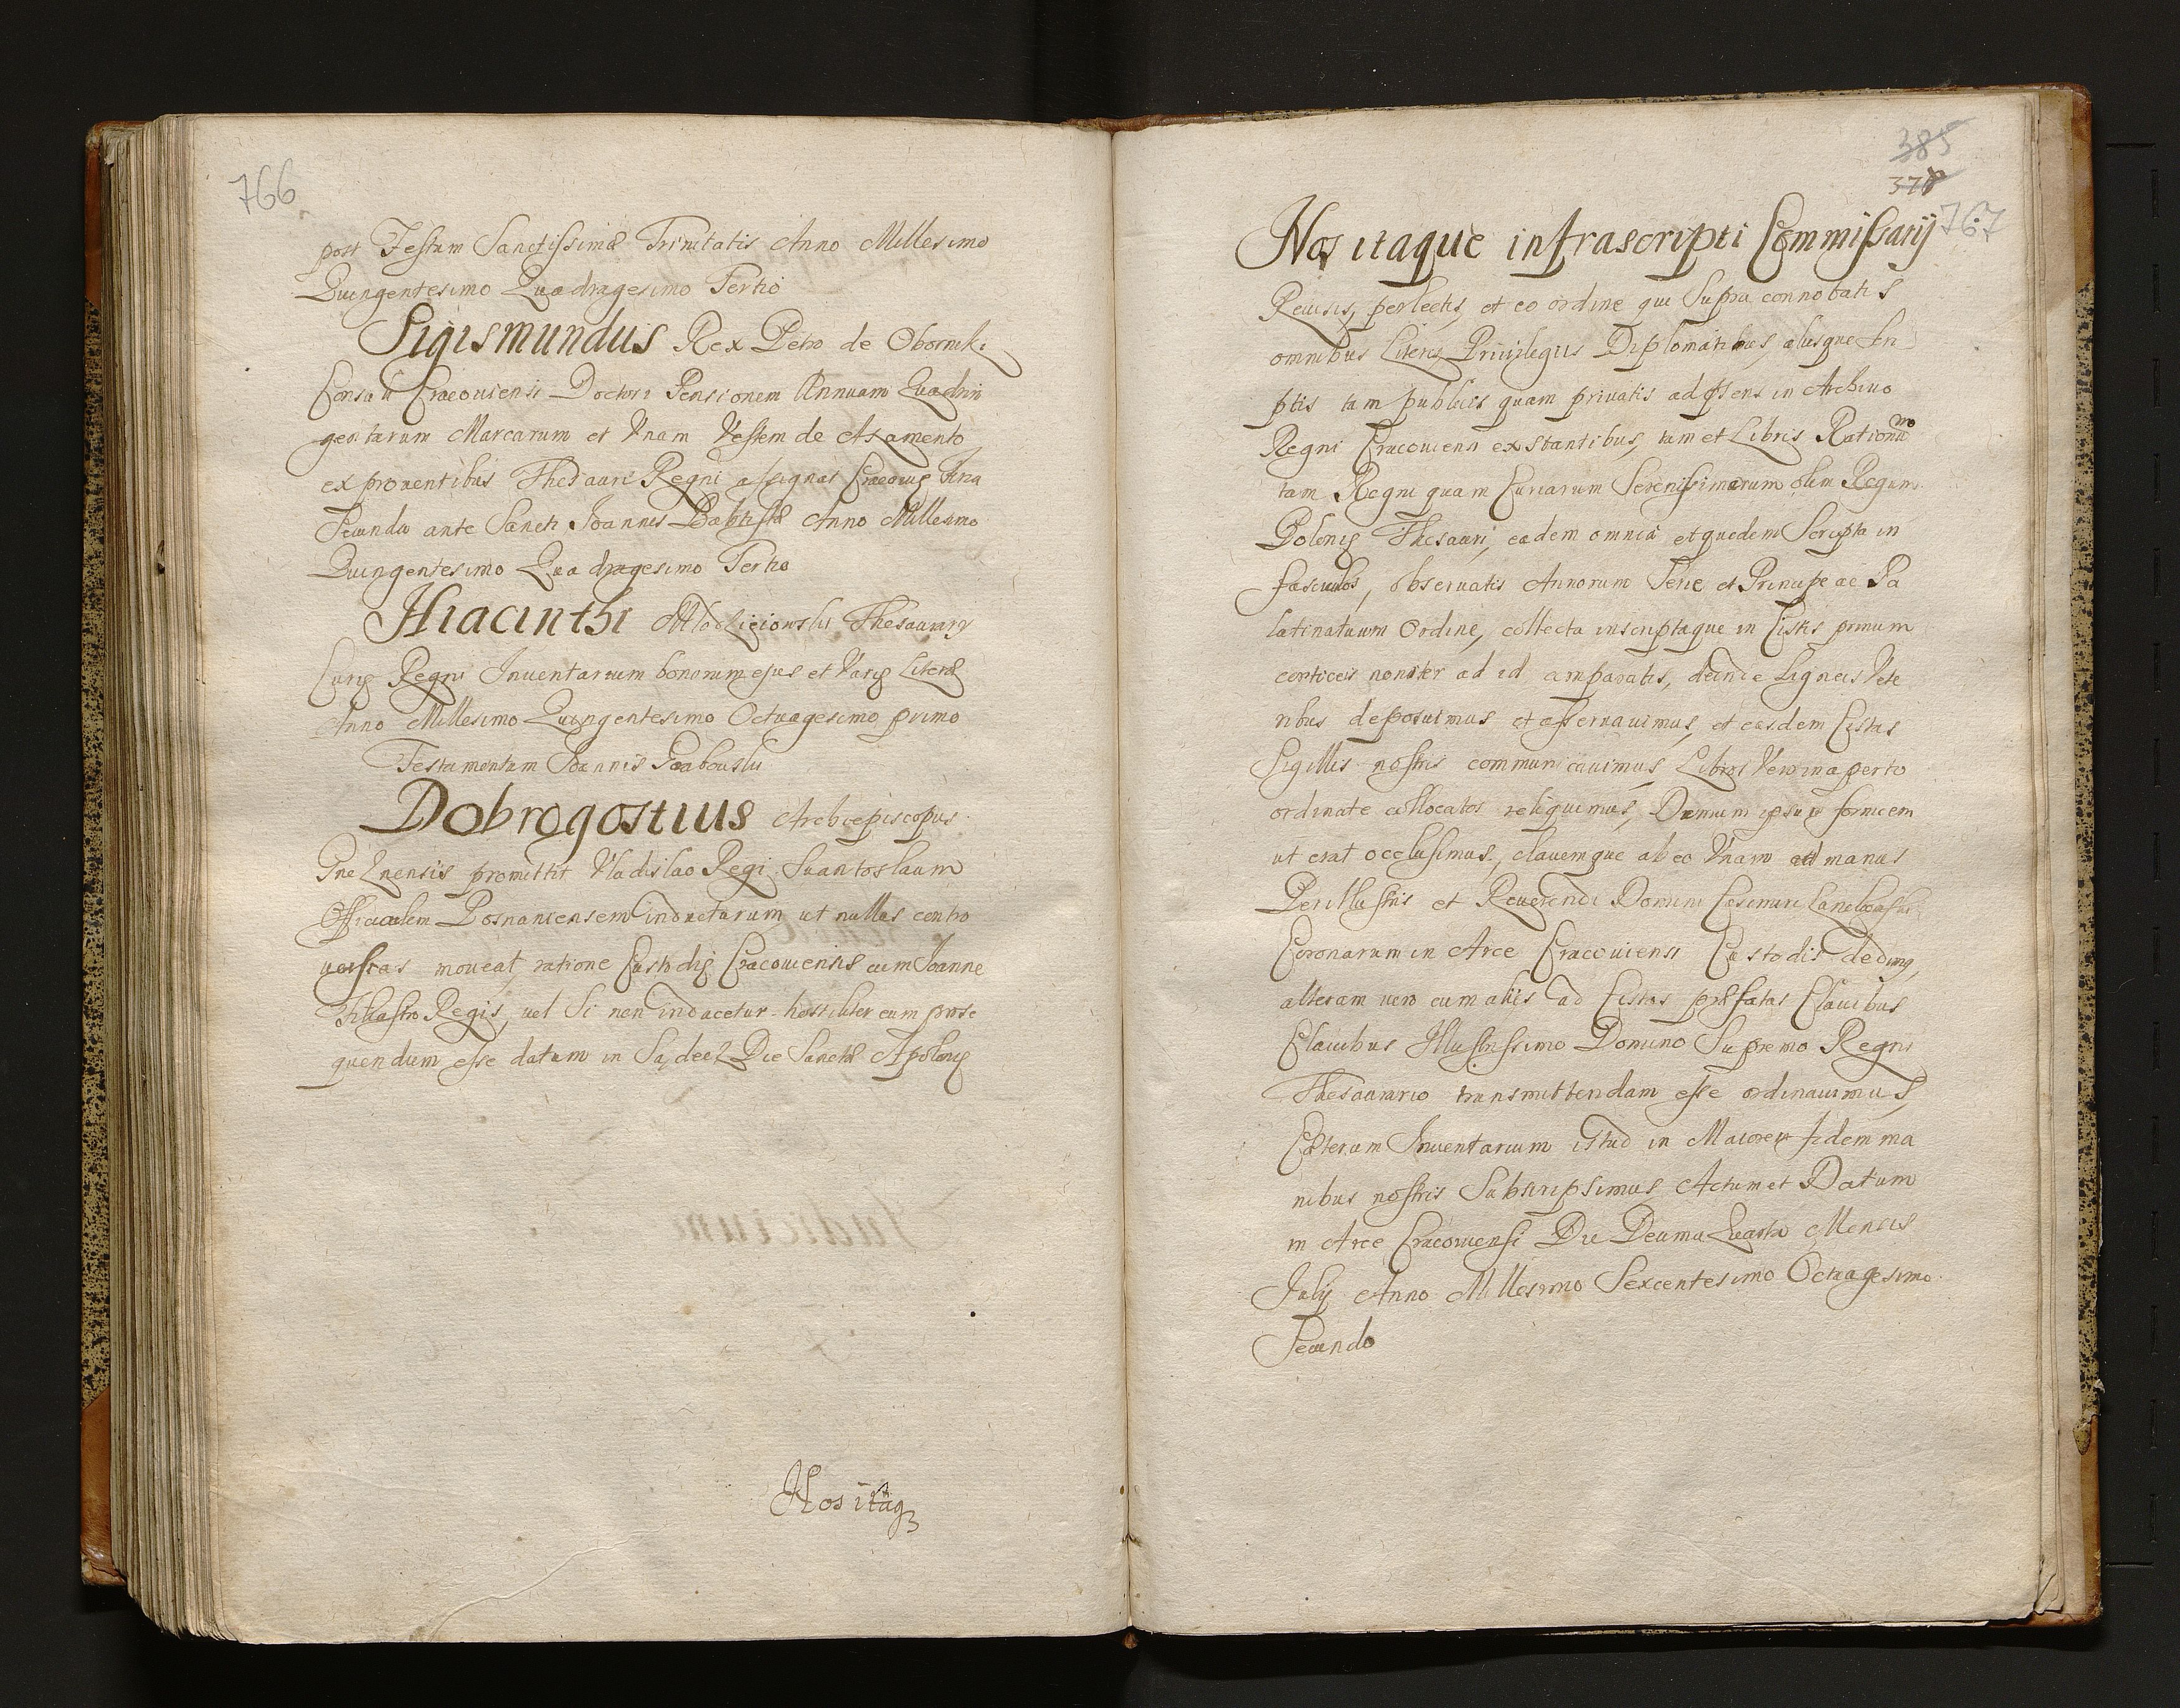 766
post Festum Sanctissimæ Trinitatis Anno Millesimo
Quingentesimo Quadragesimo Tertio
Sigismundus Rex Petro de Oborniki
Consuli Cracouiensi Doctori Pensionem Annuam Quadrin
gentarum Marcarum et Vnam Vestem de Axamento
ex prouentibus Thesauri Regni assignat Cracouiæ Feria
Secunda ante Sancti Joannis Baptistæ Anno Millesimo
Quingentesimo Quadragesimo Tertio
Hiacinthi Mlodzieiowski Thesaurarij
Curiæ Regni Inuentarium bonorum ejus et Variæ Literæ
Anno Millesimo Quingentesimo Octuagesimo primo
Testamentum Joannis
Dobrogostius Archiepiscopus
Gneznensis promittit Vladislao Regi Suantoslaum
Officialem Posnaniensem inducturum ut nullas contro
uersias moueat, ratione Custodiæ Cracouiensis cum Joanne
Filiastro Regis, uel Si non inducetur hostiliter eum prose
quendum esse datum in Sądecz Die Sanctæ Apoloniæ
Nos itaq3
385
378
767
Nos itaque infrascripti Commissarij
Reuisis, perlectis, et eo ordine quo Supra connotatis
omnibus Literis Priuilegiis Diplomatibus, aliisque In
ptis tam publicis quam priuatis ad psens in Archiuo
Regni Cracouiensi exstantibus, tum et Libris Rationū
tam Regni quam Curiarum Serenissimorum olim Regum
Poloniæ Thesauri, eadem omnia et quedem Scripta in
fasciculos, obseruatis Annorum Serie et Principe ac Pa
latinatuum Ordine, collecta inscriptaque in Cistis primum
corticeis nouiter ad id comparatis, deinde Ligneis Vete
ribus deposuimus et asseruauimus, et easdem Cistas
Sigillis nostris communicauimus, Libros Vero in aperto
ordinate collocatos reliquimus, Demum ipsum fornicem
ut erat occlusimus, clauemque ab eo Vnam ad manus
Perillustris et Reuerendi Domini Casimiri
Coronarum in Arce Cracouiensi Custodis dedimq,
alteram uero cum aliis ad Cistas præfatas Clauibus
Clauibus Illustrissimo Domino Supremo Regni
Thesaurario transmittendam esse ordinauimus,
Cæterum Inuentarium istud in Maiorem fidem ma
nibus nostris Subscripsimus Actum et Datum
in Arce Cracouiensi Die Decima Quarta Mensis
Julij Anno Millesimo Sexcentesimo Octuagesimo
Secundo